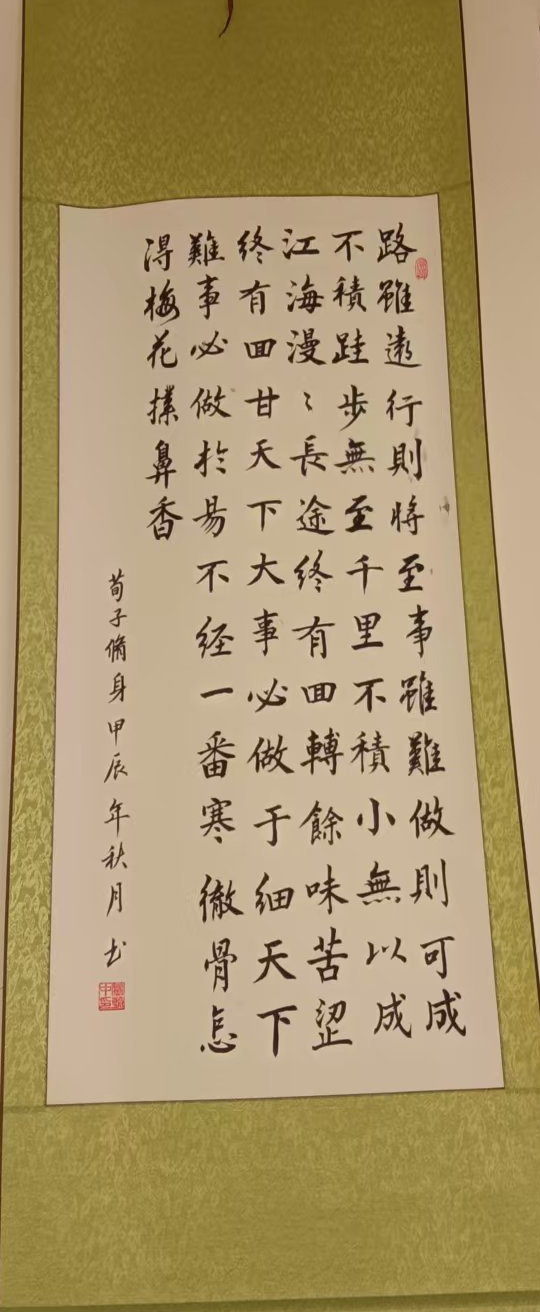 路雖遠行則將至事雖難做則可成
不積跬步無至千里不積小無以成
江海漫〻長途終有回轉餘味苦澀
終有回甘天下大事必做于細天下
難事必做於易不经一番寒徹骨怎
得梅花撲鼻香
荀子脩身甲辰年秋月书